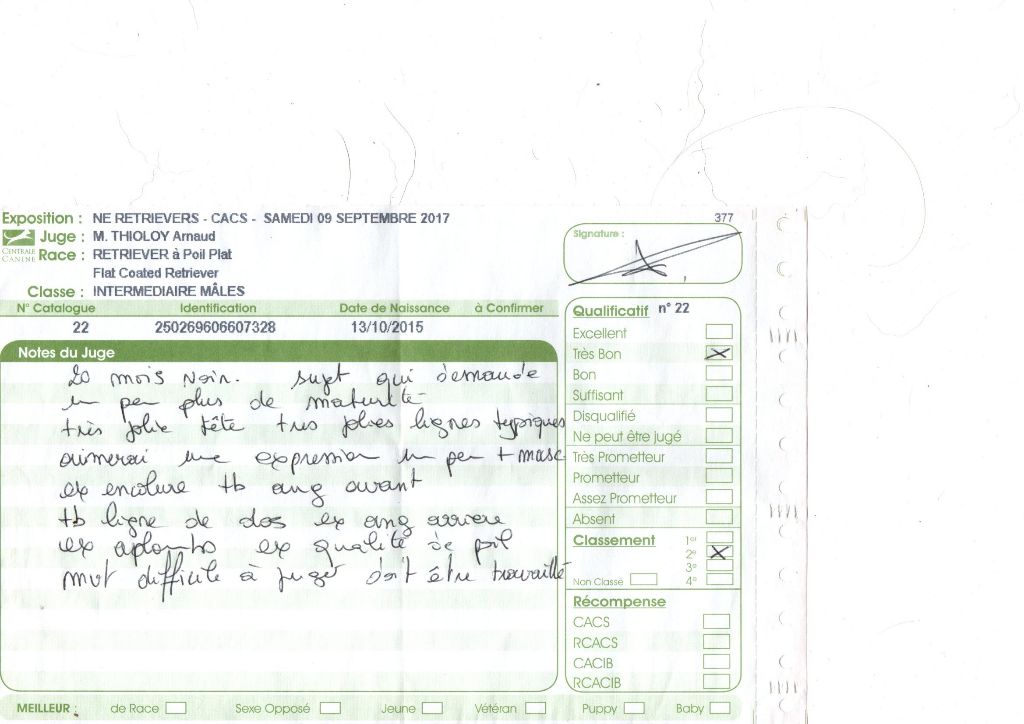 Exposition : NE RETRIEVERS - CACS - SAMEDI 09 SEPTEMBRE 2017
377
Juge : M. THIOLOY Arnaud
CENTRALE CANINE
Race : RETRIEVER à Poil Plat
Flat Coated Retriever
Classe : INTERMEDIAIRE MÂLES
Signature :
N° Catalogue Identification Date de Naissance à Confirmer
22 250269606607328 13/10/2015
Notes du Juge
20 mois Noir. sujet qui demande
un peu plus de maturité-
très jolie tête très jolies lignes typiques
aimerai une expression un peu + masc
ex encolure tb ang avant
tb ligne de dos ex ang arriere
ex aplombs ex qualité de poil
mvt difficile à juger doit être travaillé
Qualificatif n° 22
Excellent
Très Bon
Bon
Suffisant
Disqualifié
Ne peut être jugé
Très Prometteur
Prometteur
Assez Prometteur
Absent
Classement 1er
2e
3e
Non Classé 4e
Récompense
CACS
RCACS
CACIB
RCACIB
MEILLEUR : de Race Sexe Opposé Jeune Vétéran Puppy Baby